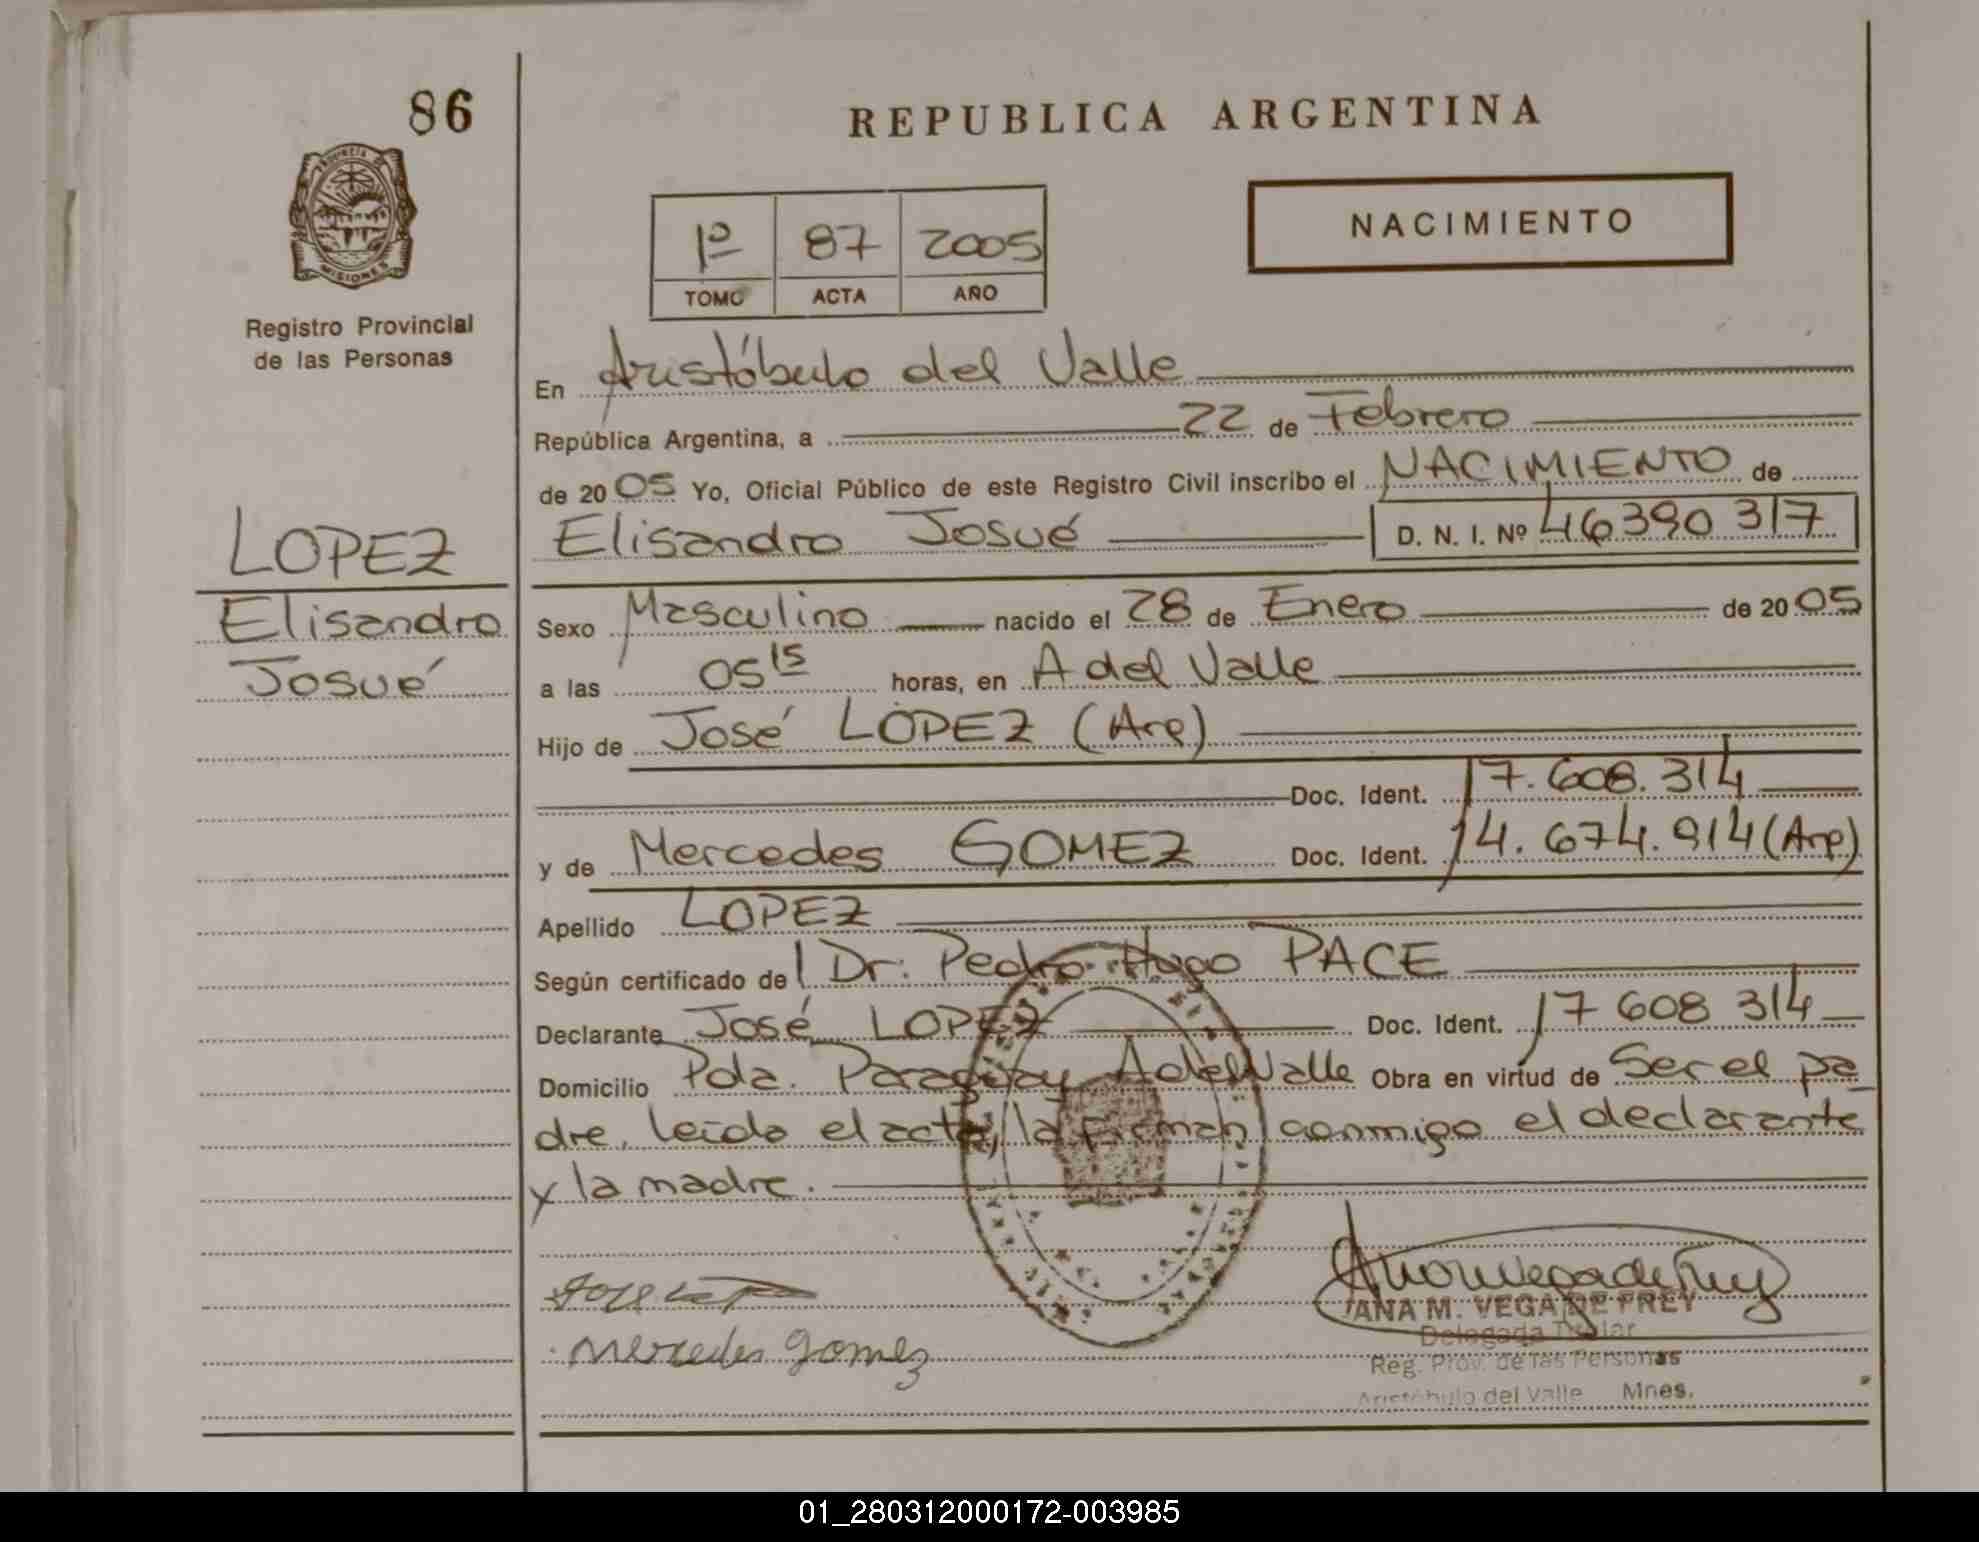 86
REPUBLICA ARGENTINA
PROVINCIA DE
MISIONES
Registro Provincial
de las Personas
NACIMIENTO
1º 87 2005
TOMO ACTA AÑO
En Aristóbulo del Valle
República Argentina, a 22 de Febrero
de 2005 Yo, Oficial Público de este Registro Civil inscribo el NACIMIENTO de
Elisandro Josué D. N. I. Nº 46390317
LOPEZ
Elisandro
Josué
Sexo Masculino nacido el 28 de Enero de 2005
a las 05 15 horas, en A del Valle
Hijo de José LOPEZ (Arg)
Doc. Ident. 17.608.314
y de Mercedes GOMEZ Doc. Ident. 14.674.914 (Arg)
Apellido LOPEZ
Según certificado del Dr. Pedro Hugo PACE
Declarante José LOPEZ Doc. Ident. 17 608 314
Domicilio Pda. Paraguay A del Valle Obra en virtud de Ser el pa
dre. Leída el acta, la firman conmigo el declarante
y la madre.
Jose Lopez
Mercedes Gomez
ANA M. VEGA DE FREY
Delegada Titular
Reg. Prov. de las Personas
Aristóbulo del Valle Mnes.
01_280312000172-003985